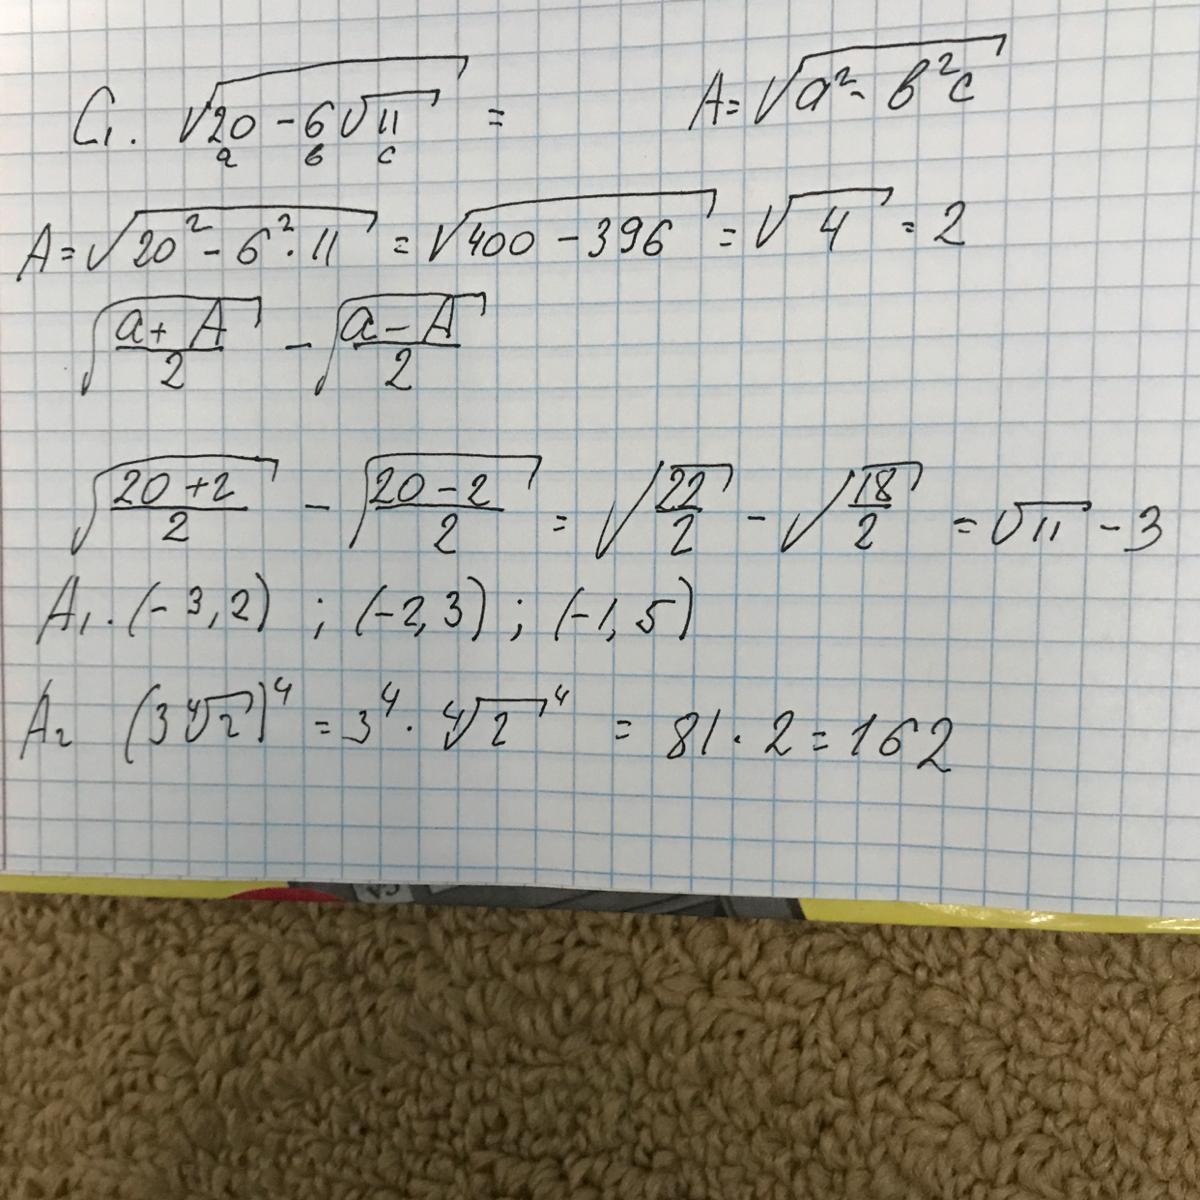 C₁. √(20 - 6√11) = A = √(a² - в²c)
a в c
A = √(20² - 6² · 11) = √(400 - 396) = √4 = 2
√((a + A)/2) - √((a - A)/2)
√((20 + 2)/2) - √((20 - 2)/2) = √(22/2) - √(18/2) = √11 - 3
A₁. (-3,2) ; (-2,3) ; (-1,5)
A₂ (3 ⁴√2)⁴ = 3⁴ · ⁴√2⁴ = 81 · 2 = 162